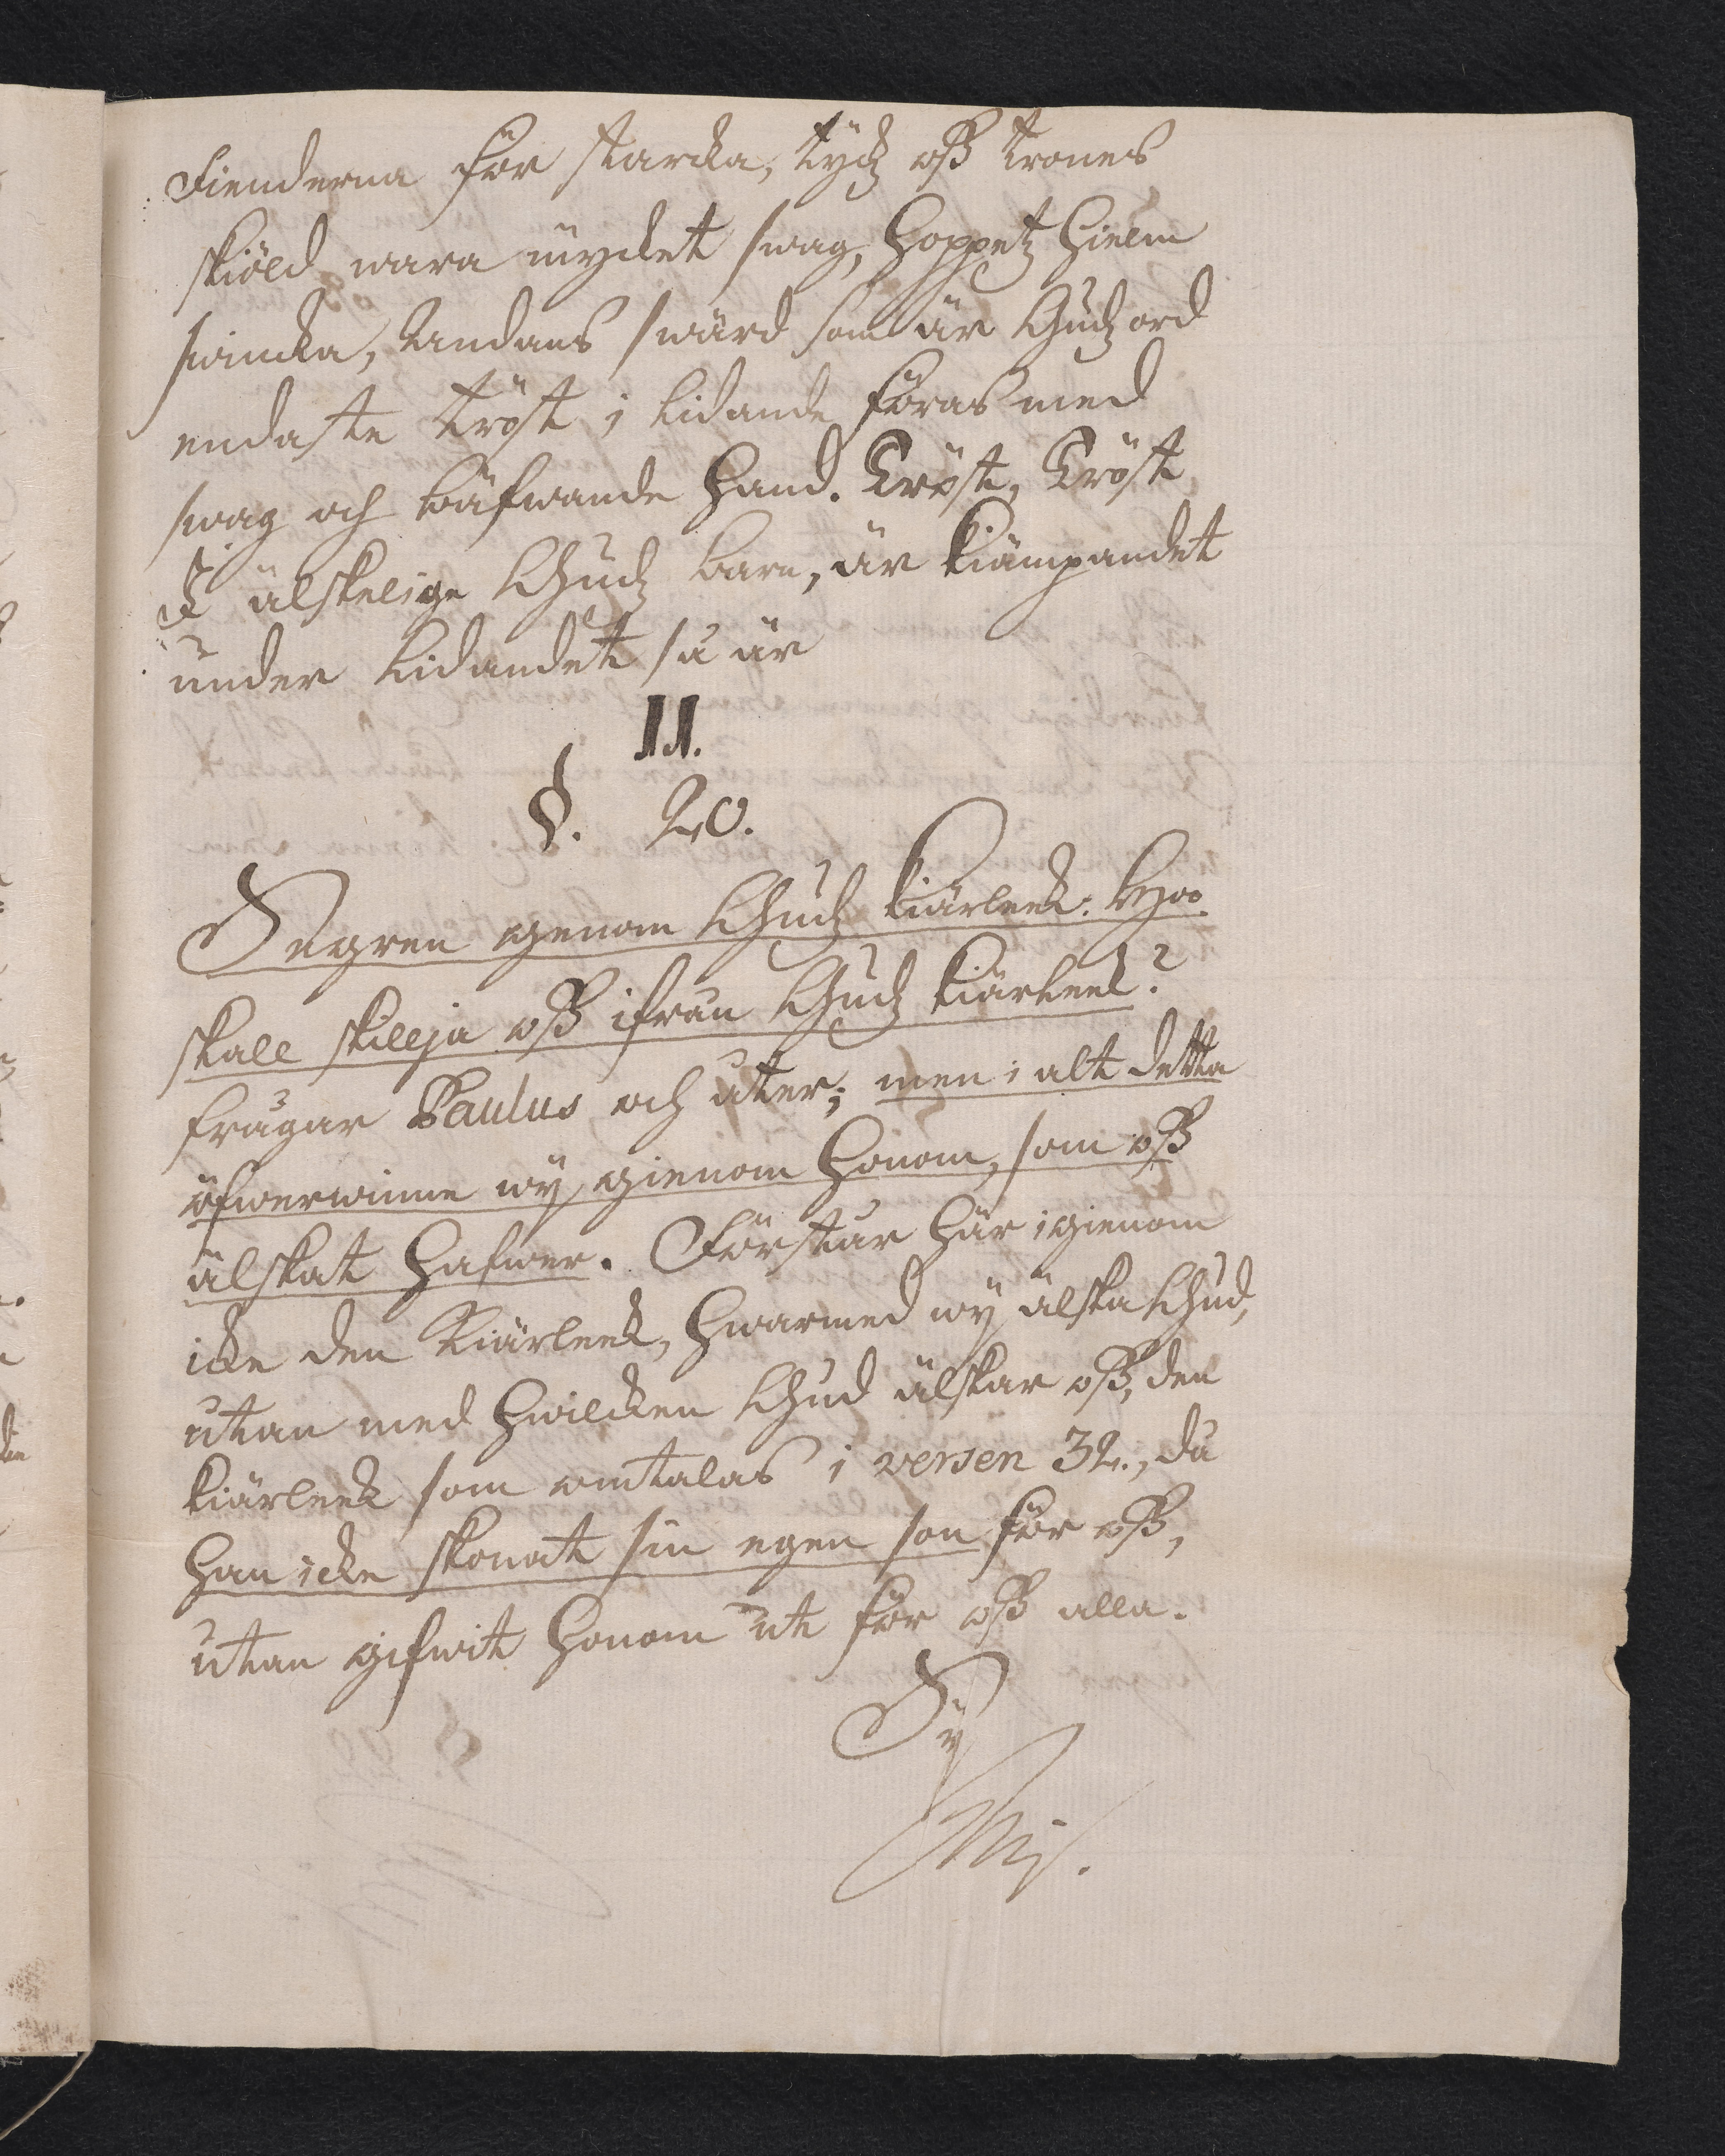 fienderna för starcka, tyckz oß trones
skiöld wara mycket swag, hoppetz hielm
swicka, Andans swärd som är Gudz ord
endaste tröst i lidande föras med
swag och bäfwande hand. Tröst, Tröst
I älskelige Gudz barn, är kiämpandet
under lidandet så är
II.
§. 20.
Segren genom Gudz kiärleek. Hoo
skall skillja oß ifrån Gudz kiärleek?
frågar Paulus och åter; men i alt detta
öfwerwinne wij gienom honom, som oß
älskat hafwer. Förstår här igienom
icke den kiärleek, hwarmed wij älska Gud,
utan med hwilcken Gud älskar oß, den
kiärleek som omtalas i versen 32., då
han icke skonat sin egen son för oß,
utan gifwit honom ut för oß alla.
Sij